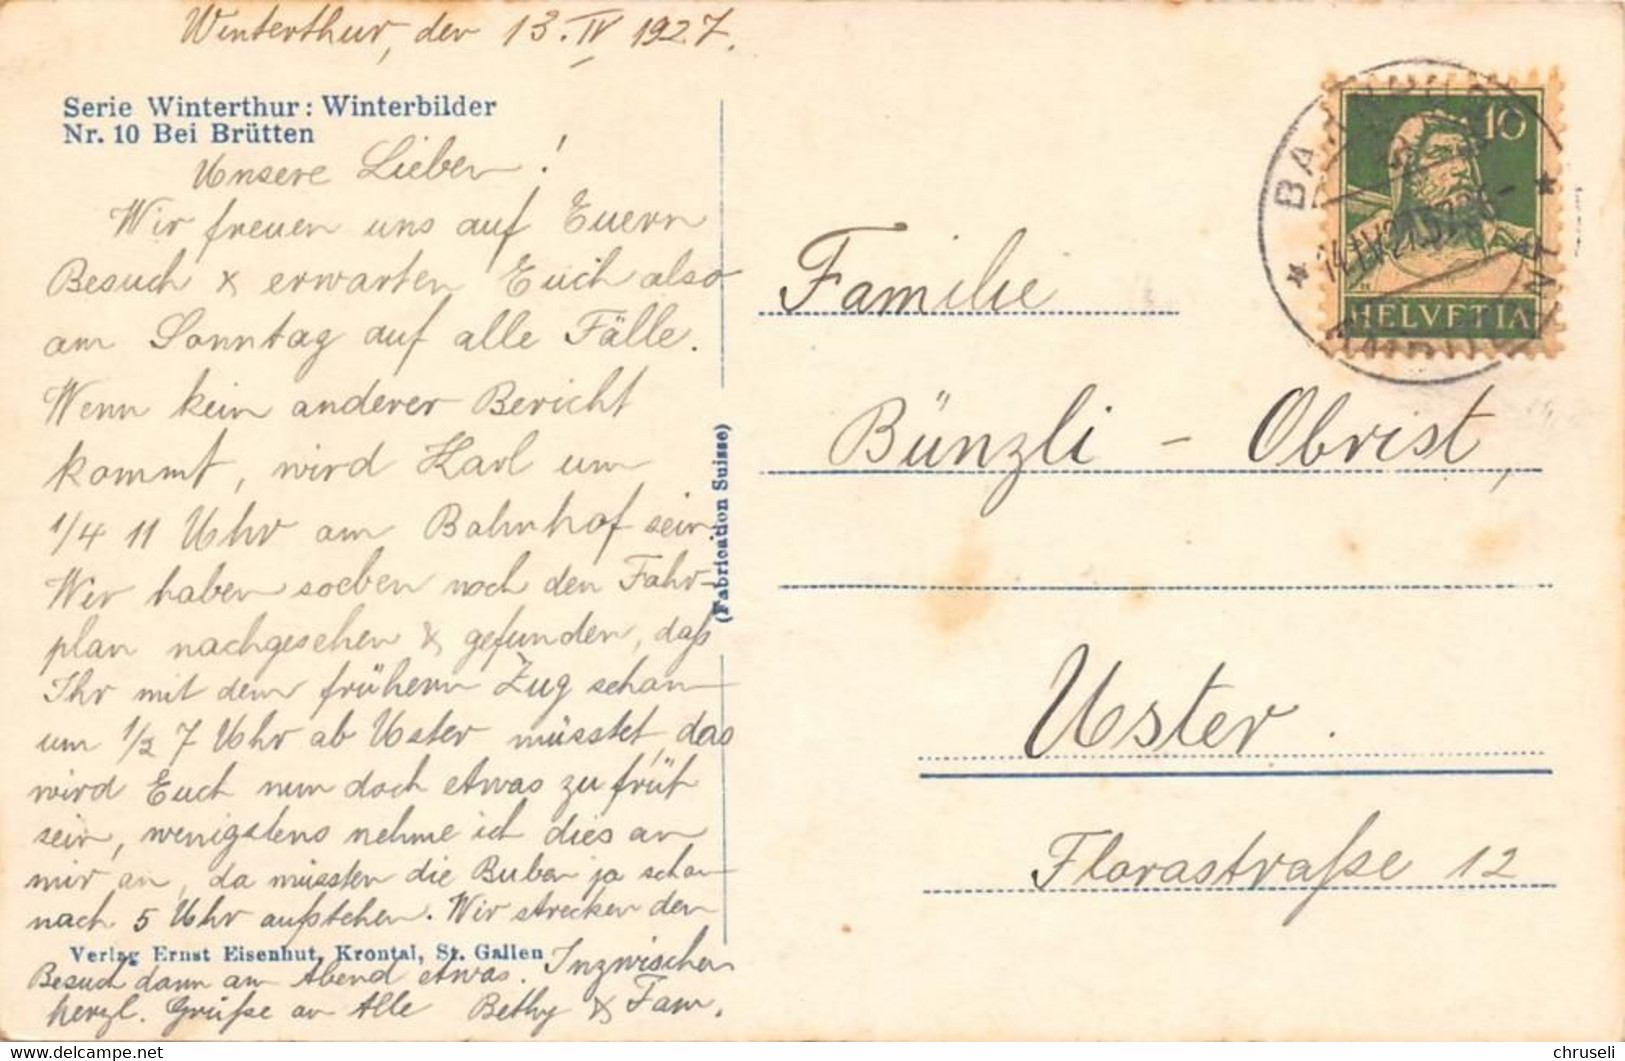 Winterthur, den 13. IV 1927.
Serie Winterthur: Winterbilder
Nr. 10 Bei Brütten
Unsere Lieben!
Wir freuen uns auf Euern
Besuch & erwarten Euch also
am Sonntag auf alle Fälle.
Wenn kein anderer Bericht
kommt, wird Karl um
1/4 11 Uhr am Bahnhof sein.
Wir haben soeben noch den Fahr-
plan nachgesehen & gefunden, daß
Ihr mit dem frühern Zug schon
um 1/2 7 Uhr ab Uster müsstet, das
wird Euch nun doch etwas zu früh
sein, wenigstens nehme ich dies an
mir an, da müssten die Buben ja schon
nach 5 Uhr aufstehen. Wir strecken den
Verlag Ernst Eisenhut, Krontal, St. Gallen
Besuch dann am Abend etwas. Inzwischen
herzl. Grüße an Alle Bethy & Fam.
(Fabrication Suisse)
10
HELVETIA
Familie
Bünzli - Obrist,
Uster.
Florastraße 12
chruseli